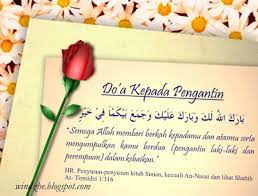 Do'a Kepada Pengantin
بَارَكَ اللهُ لَكَ وَبَارَكَ عَلَيْكَ وَجَمَعَ بَيْنَكُمَا فِي خَيْرٍ
"Semoga Allah memberi berkah kepadamu dan atasmu serta
mengumpulkan kamu berdua (pengantin laki-laki dan
perempuan) dalam kebaikan."
HR. Penyusun-penyusun kitab Sunan, kecuali An-Nasai dan lihat Shahih
At- Tirmidzi 1/316
winachie.blogspot.com